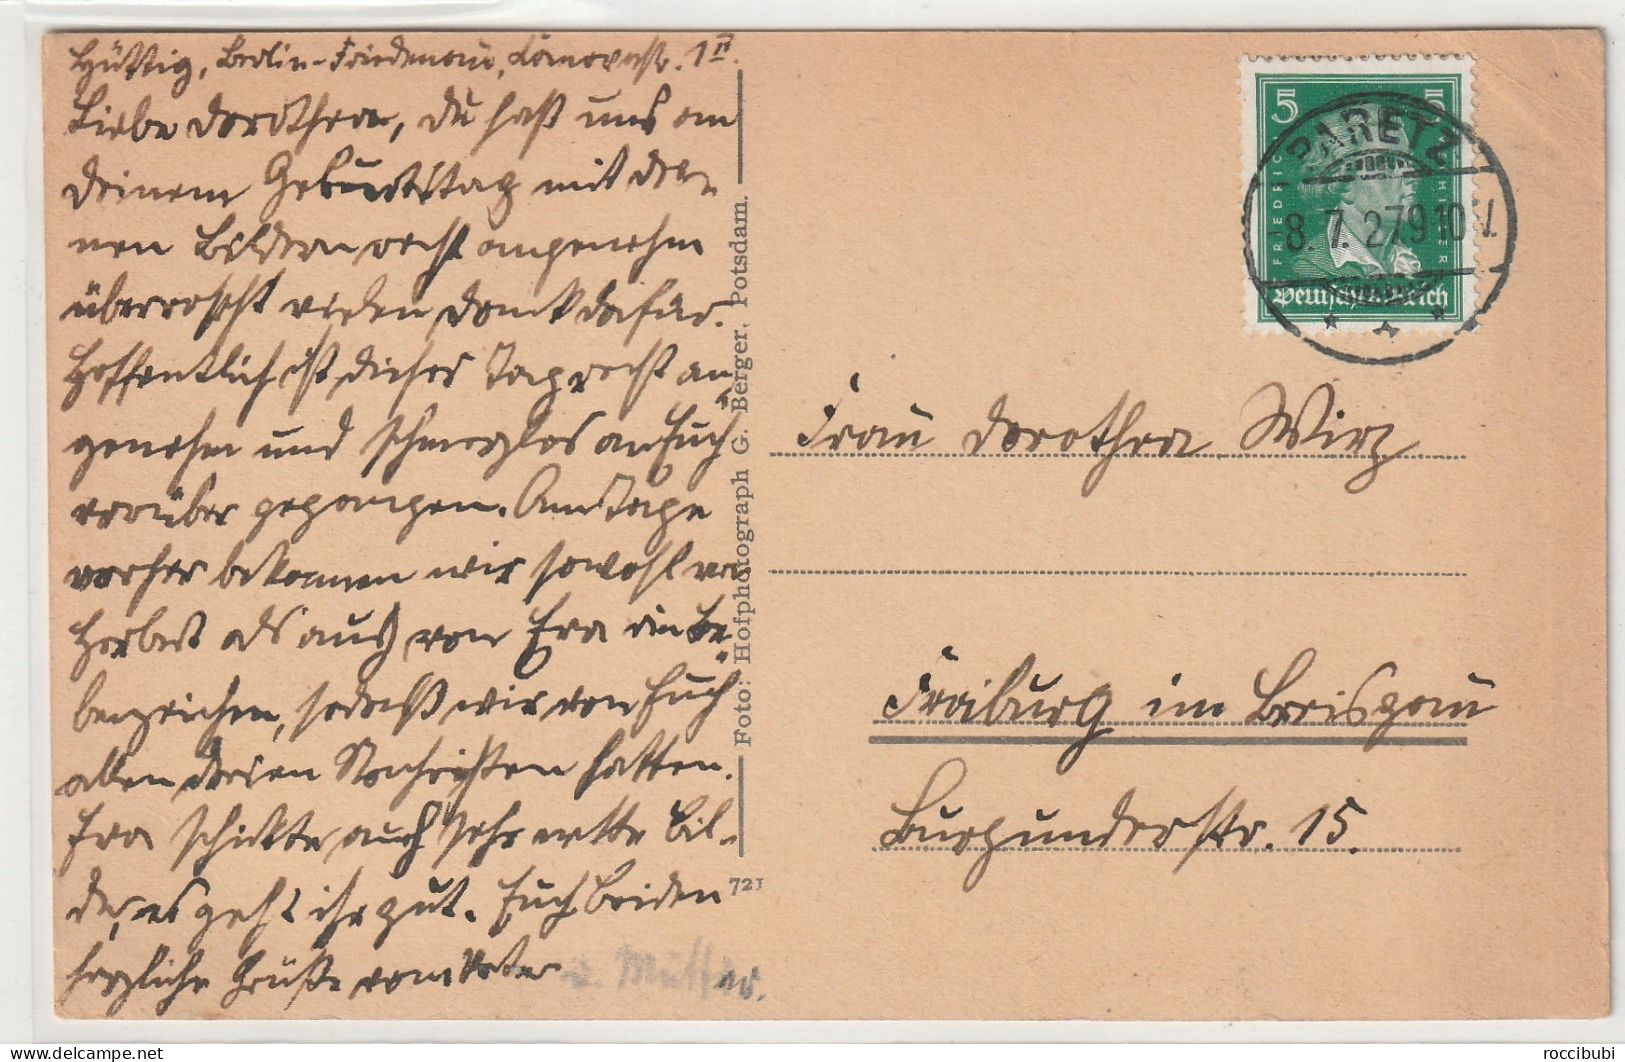 Hüttig, Berlin-Friedenau, 1 II.
Liebe Dorothea, Du hast uns an
Deinem Geburtstag mit den
Bildern recht angenehm
überrascht vielen Dank dafür.
Hoffentlich ist dieser Tag recht an
genehm und schmerzlos an Euch
vorüber gegangen. Am Tage
vorher bekamen wir sowohl von
Herbert als auch von Eva
sodaß wir von Euch
allen dreien Nachrichten hatten.
Eva schickte auch sehr nette Bil-
der, es geht ihr gut. Euch beiden
herzliche Grüße vom Vater
u. Mutter.
Foto: Hofphotograph G. Berger, Potsdam.
721
5 5
FRIEDRICH
Deutsches Reich
PARETZ
8.7.27 9-10 V.
Frau Dorothea Wirz
Freiburg im Breisgau
Burgunderstr. 15.
roccibubi